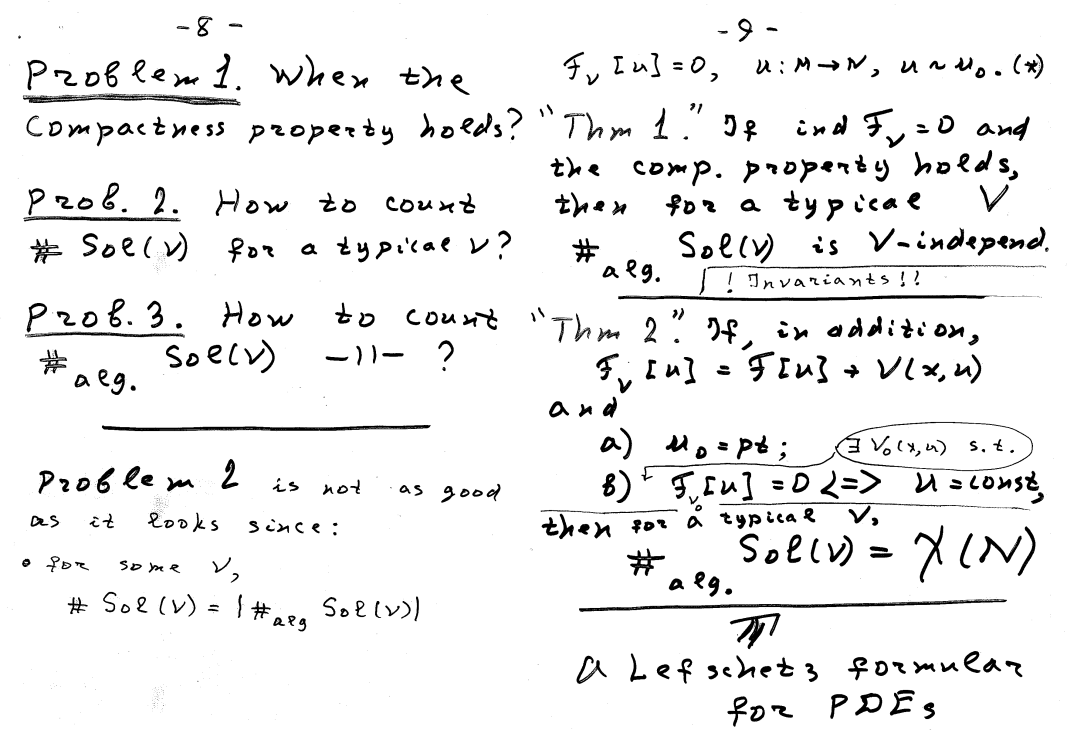 - 8 -
Problem 1. When the
Compactness property holds?
Prob. 2. How to count
# Sol(V) for a typical V?
Prob. 3. How to count
#alg. Sol(V) -11- ?
Problem 2 is not as good
as it looks since:
• for some V,
# Sol(V) = |#alg Sol(V)|
- 9 -
F_V [u] = 0, u : M → N, u ~ u₀. (*)
"Thm 1." If ind F_V = 0 and
the comp. property holds,
then for a typical V
#alg. Sol(V) is V-independ.
! Invariants!!
"Thm 2." If, in addition,
F_V [u] = F[u] + V(x,u)
and
a) u₀ = pt; ∃ V₀(x,u) s.t.
b) F_V₀[u] = 0 <=> u = const,
then for a typical V,
#alg. Sol(V) = χ(N)
a Lefschetz formular
for PDEs